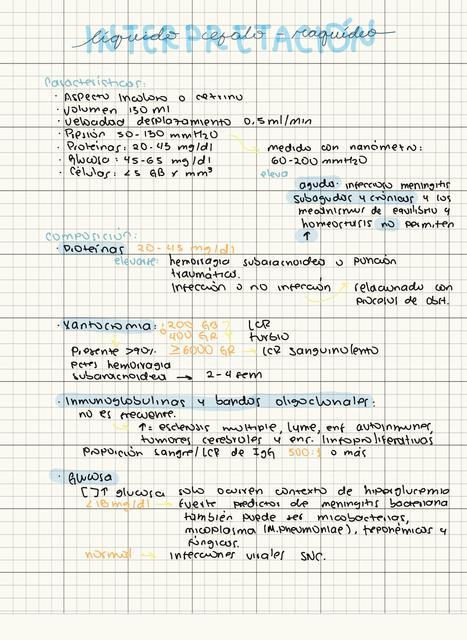 INTERPRETACIÓN
líquido cefalo-raquídeo
Características:
· Aspecto incoloro o cetrino
· Volumen 150 ml
· Velocidad desplazamiento 0,5 ml/min
· Presión 50-150 mmH2O
· Proteínas: 20-45 mg/dl → medido con manómetro:
· Glucosa: 45-65 mg/dl 60-200 mmH2O
· Células: <5 GB x mm³ eleva
aguda: infeccioso meningitis
subagudos y crónicos y los
mecanismos de equilibrio y
homeostasis no permiten
↑
Composición:
· Proteínas 20-45 mg/dl
elevarse: hemorragia subaracnoidea o punción
traumática.
Infección o no infección → relacionado con
proceso de obst.
· Xantocromia: :200 GB LCR
400 GR turbio
Presente >90% ≥6000 GR → LCR sanguinolento
pctes hemorragia
subaracnoidea → 2-4 sem
· Inmunoglobulinas y bandas oligoclonales:
no es frecuente.
↑= esclerosis multiple, lyme, enf autoinmunes,
tumores cerebrales y enf. linfoproliferativas
Proporción sangre/LCR de IgG 500:1 o más
· Glucosa
[ ]↑ glucosa solo ocurren contexto de hiperglucemia
<18 mg/dl → fuerte predictor de meningitis bacteriana
también puede ser micobacterias,
micoplasma (M.pneumoniae), treponémicos y
fúngicos.
normal → infecciones virales SNC.